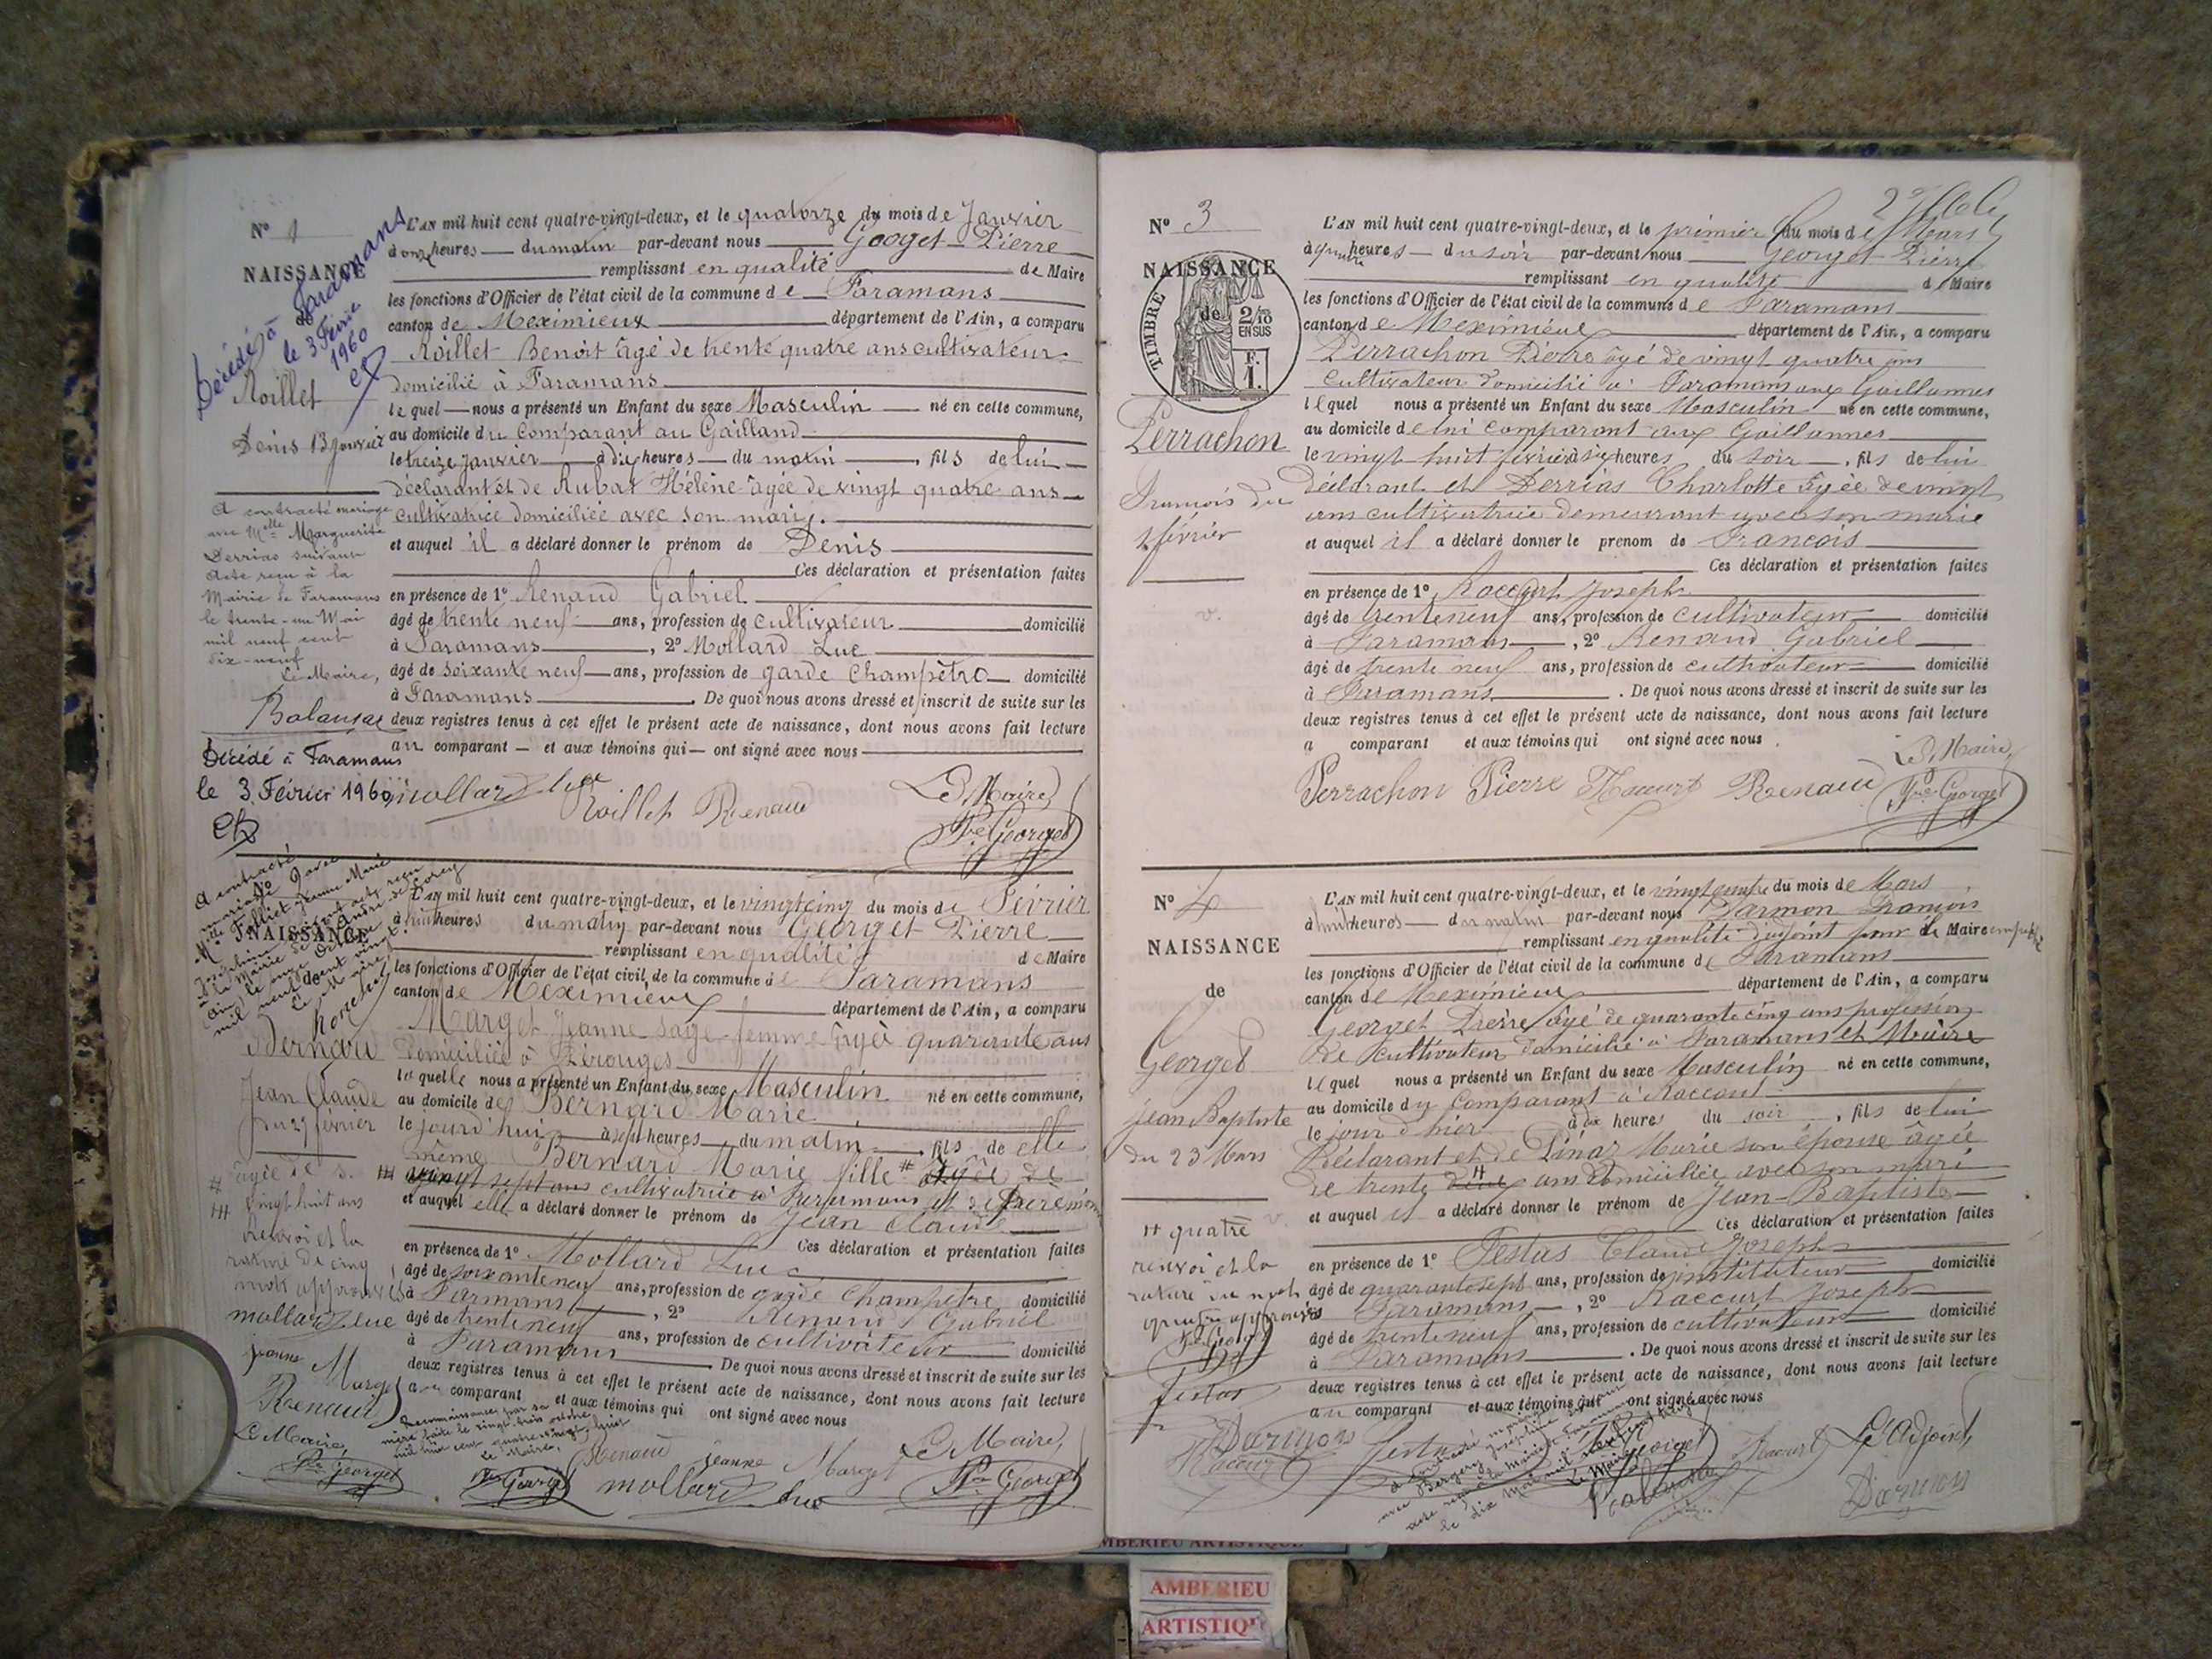 N° 1
NAISSANCE
de
Décédé à Faramans
le 3 Février
1960
Roillet
Denis 13 janvier
A contracté mariage
avec Melle Marguerite
Derrias suivant
Acte reçu à la
Mairie de Faramans
le trente-un Mai
mil neuf cent
dix-neuf
Le Maire,
Décédé à Faramans
le 3 Février 1960
L'AN mil huit cent quatre-vingt-deux, et le quatorze du mois de Janvier
à onze heures du matin par-devant nous Georget Pierre
remplissant en qualité de Maire
les fonctions d'Officier de l'état civil de la commune de Faramans
canton de Meximieux département de l'Ain, a comparu
Roillet Benoit âgé de trente quatre ans cultivateur
domicilié à Faramans
lequel nous a présenté un Enfant du sexe Masculin né en cette commune,
au domicile du comparant au Gailland
le treize janvier à dix heures du matin, fils de lui
déclarant et de Rubat Hélène âgée de vingt quatre ans
cultivatrice domiciliée avec son mari.
et auquel il a déclaré donner le prénom de Denis
Ces déclaration et présentation faites
en présence de 1° Renaud Gabriel
âgé de trente neuf ans, profession de cultivateur domicilié
à Faramans, 2° Mollard Luc
âgé de soixante neuf ans, profession de garde champêtre domicilié
à Faramans. De quoi nous avons dressé et inscrit de suite sur les
deux registres tenus à cet effet le présent acte de naissance, dont nous avons fait lecture
au comparant et aux témoins qui ont signé avec nous
mollard luc Roillet Renaud Le Maire,
Pre Georget
N° 2
NAISSANCE
de
A contracté
mariage avec
Bernard
Jean Claude
âgée de
vingt huit ans
Renvoi et la
rature de cinq
mots approuvés
mollard luc
jeanne Marget
Renaud
Le Maire,
Pre Georget
L'AN mil huit cent quatre-vingt-deux, et le vingt cinq du mois de Février
à huit heures du matin par-devant nous Georget Pierre
remplissant en qualité de Maire
les fonctions d'Officier de l'état civil de la commune de Faramans
canton de Meximieux département de l'Ain, a comparu
Marget Jeanne sage-femme âgée quarante ans
domiciliée à Pérouges
laquelle nous a présenté un Enfant du sexe Masculin né en cette commune,
au domicile de Bernard Marie
le jourd'hui à sept heures du matin, fils de elle
même Bernard Marie fille # âgée de
vingt sept ans cultivatrice à Faramans
et auquel elle a déclaré donner le prénom de Jean Claude
Ces déclaration et présentation faites
en présence de 1° Mollard Luc
âgé de soixante neuf ans, profession de garde champêtre domicilié
à Farmans, 2° Renaud Gabriel
âgé de trente neuf ans, profession de cultivateur domicilié
à Faramans. De quoi nous avons dressé et inscrit de suite sur les
deux registres tenus à cet effet le présent acte de naissance, dont nous avons fait lecture
au comparant et aux témoins qui ont signé avec nous
Reconnaissance par sa
mère faite le vingt trois
mil huit cent quatre vingt
le Maire,
Pre Georget Renaud jeanne Marget Le Maire,
mollard luc Pre Georget
N° 3
NAISSANCE
de
TIMBRE
2/10
EN SUS
F.
1.
Perrachon
François du
février
v.
L'AN mil huit cent quatre-vingt-deux, et le premier du mois de Mars
à quatre heures du soir par-devant nous Georget Pierre
remplissant en qualité de Maire
les fonctions d'Officier de l'état civil de la commune de Faramans
canton de Meximieux département de l'Ain, a comparu
Perrachon Pierre âgé de vingt quatre ans
cultivateur domicilié à Faramans aux Gaillannes
lequel nous a présenté un Enfant du sexe Masculin né en cette commune,
au domicile de lui comparant aux Gaillannes
le vingt huit février à six heures du soir, fils de lui
déclarant et Derrias Charlotte âgée de vingt
ans cultivatrice demeurant avec son marie
et auquel il a déclaré donner le prenom de François
Ces déclaration et présentation faites
en présence de 1° Raccurt Joseph
âgé de trente neuf ans, profession de cultivateur domicilié
à Faramans, 2° Renaud Gabriel
âgé de trente neuf ans, profession de cultivateur domicilié
à Faramans. De quoi nous avons dressé et inscrit de suite sur les
deux registres tenus à cet effet le présent acte de naissance, dont nous avons fait lecture
a comparant et aux témoins qui ont signé avec nous.
Le Maire,
Perrachon Pierre Racurt Renaud Pre Georget
N° 4
NAISSANCE
de
Georget
Jean Baptiste
du 23 Mars
# quatre
renvoi et la
rature du mot
quatre approuvés
Pre Georget
Festas
Darmon
Racurt
L'AN mil huit cent quatre-vingt-deux, et le vingt quatre du mois de Mars
à huit heures du matin par-devant nous Darmon François
remplissant en qualité d'adjoint pour le Maire empêché
les fonctions d'Officier de l'état civil de la commune de Faramans
canton de Meximieux département de l'Ain, a comparu
Georget Pierre âgé de quarante cinq ans profession
de cultivateur domicilié à Faramans et Maire
lequel nous a présenté un Enfant du sexe Masculin né en cette commune,
au domicile du comparant à Raccourt
le jour d'hier à dix heures du soir, fils de lui
Déclarant et de Pinaz Marie son épouse âgée
de trente deux # ans domiciliée avec son mari
et auquel il a déclaré donner le prénom de Jean-Baptiste
Ces déclaration et présentation faites
en présence de 1° Festas Claude Joseph
âgé de quarante sept ans, profession de instituteur domicilié
Faramans, 2° Raccurt Joseph
âgé de trente neuf ans, profession de cultivateur domicilié
à Faramans. De quoi nous avons dressé et inscrit de suite sur les
deux registres tenus à cet effet le présent acte de naissance, dont nous avons fait lecture
au comparant et aux témoins qui ont signé avec nous
Festas Racurt L'adjoint,
Darmon
AMBERIEU ARTISTIQUE
AMBERIEU
ARTISTIQUE